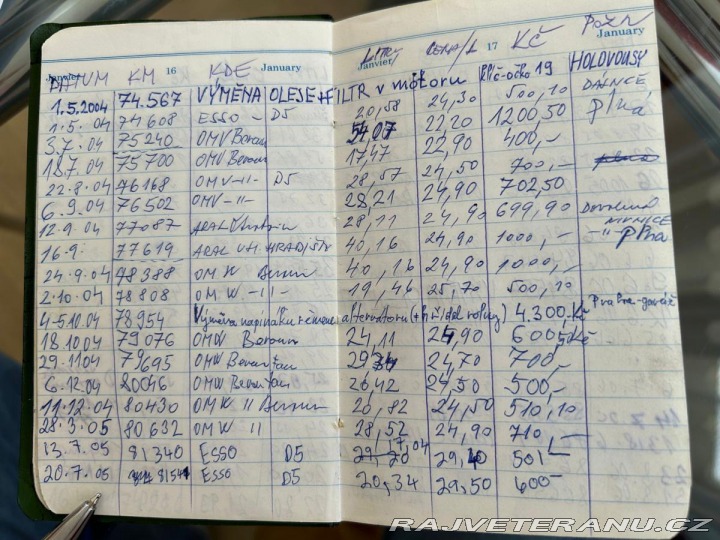 Janvier 16 January Janvier 17 January
DATUM KM KDE LITRY CENA/L Kč POZN
1.5.2004 74.567 VÝMĚNA OLEJE + FILTR v motoru Plíč-očko 19 HOLOVOUSY
1.5.04 74608 ESSO - D5 20,58 24,30 500,10 DÁLNICE
3.7.04 75240 OMV Beroun 54,07 22,20 1200,50 plná
18.7.04 75700 OMV Beroun 17,47 22,90 400,-
22.8.04 76168 OMV -II- D5 28,57 24,50 700,-
6.9.04 76502 OMV -II- 28,21 24,90 702,50
12.9.04 77087 ARAL 28,11 24,90 699,90
16.9. 77619 ARAL UH. HRADIŠTĚ 40,16 24,90 1000,- -II- plná
24.9.04 78388 OMW Beroun 40,16 24,90 1000,-
2.10.04 78808 OMW -II- 19,46 25,70 500,10
4-5.10.04 78954 Výměna napínáku řemenu alternátoru 4.300,Kč Praha-garáž
18.10.04 79076 OMW Beroun 24,11 24,90 600 Kč
29.11.04 79695 OMW Beroun 24,70 700,-
6.12.04 80046 OMW Beroun 20,42 24,50 500,-
11.12.04 80430 OMW II Beroun 20,82 24,50 510,10
28.3.05 80632 OMW II 28,52 24,90 710,-
13.7.05 81340 ESSO D5 17,04 29,40 501,-
20.7.05 81541 ESSO D5 20,34 29,50 600,-
RAJVETERANU.CZ